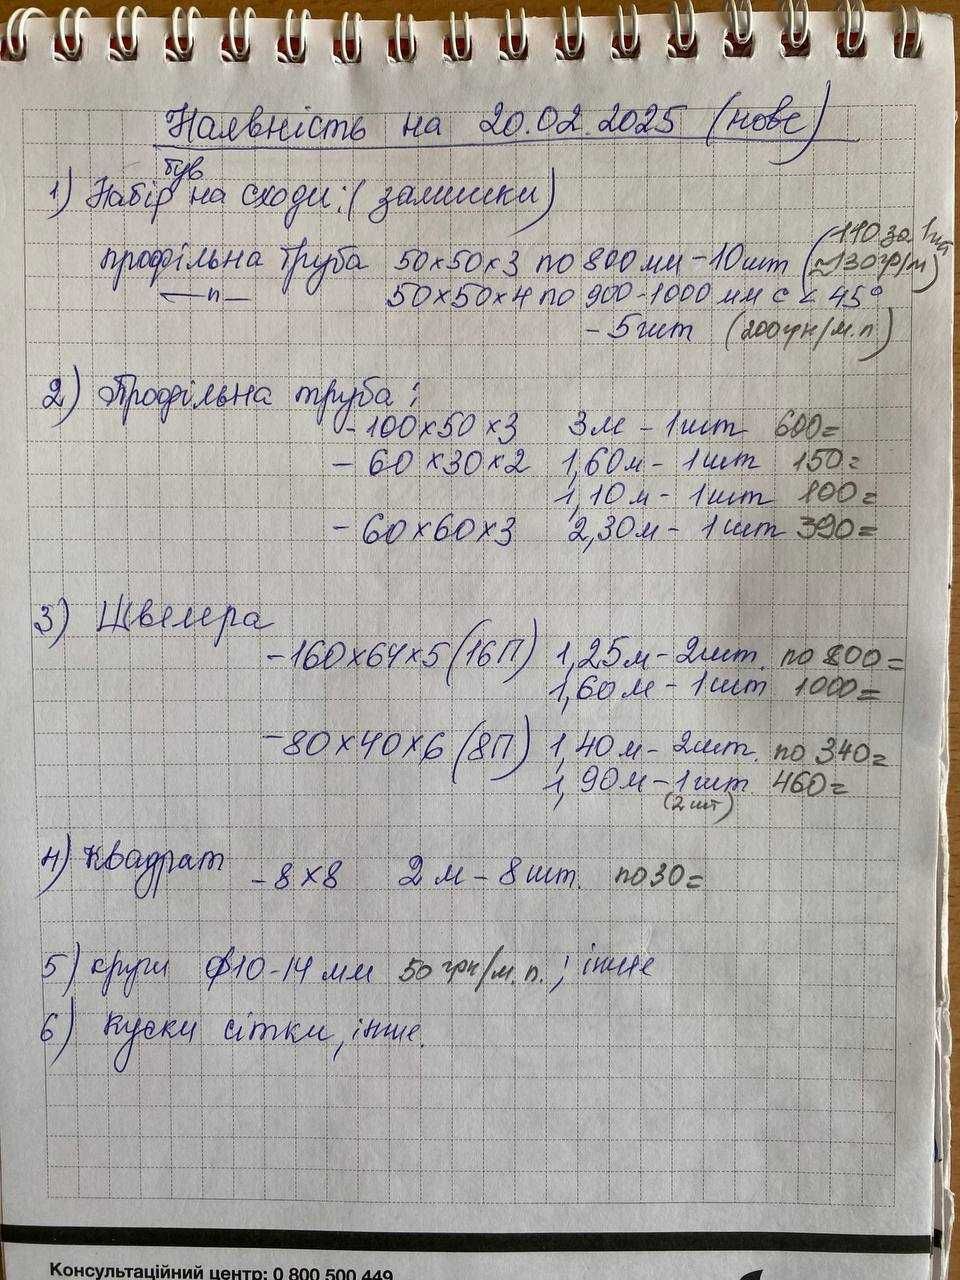 Наявність на 20.02.2025 (нове)
був
1) Набір на сходи: (залишки)
профільна труба 50x50x3 по 800 мм - 10 шт (110 за 1шт
≈130гр/м)
—п— 50x50x4 по 900-1000 мм с < 45°
- 5 шт (200грн/м.п)
2) Профільна труба:
- 100x50x3 3м - 1шт 600=
- 60x30x2 1,60м - 1шт 150=
1,10м - 1шт 100=
- 60x60x3 2,30м - 1шт 390=
3) Швелера
- 160x64x5 (16П) 1,25м - 2шт. по 800=
1,60м - 1шт 1000=
- 80x40x6 (8П) 1,40м - 2шт. по 340=
1,90м - 1шт 460=
(2 шт)
4) Квадрат - 8x8 2м - 8шт. по 30=
5) круги ф10-14 мм 50 грн/м.п. ; інше
6) Куски сітки, інше.
Консультаційний центр: 0 800 500 449